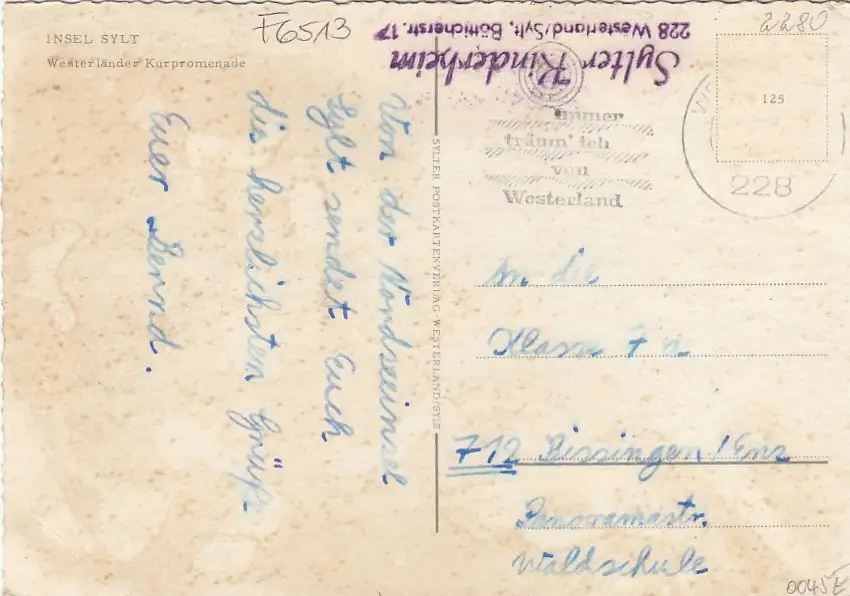 INSEL SYLT
Westerländer Kurpromenade
F6513
Sylter Kinderheim
228 Westerland/Sylt, Bötticherstr. 17
2280
125
228
Immer
träum' ich
von
Westerland
Von der Nordseeinsel
Sylt sendet Euch
die herzlichsten Grüße
Euer Bernd.
SYLTER POSTKARTENVERLAG · WESTERLAND/SYLT
An die
Klasse 7a
712 Bissingen/Enz
Panoramastr.
Waldschule